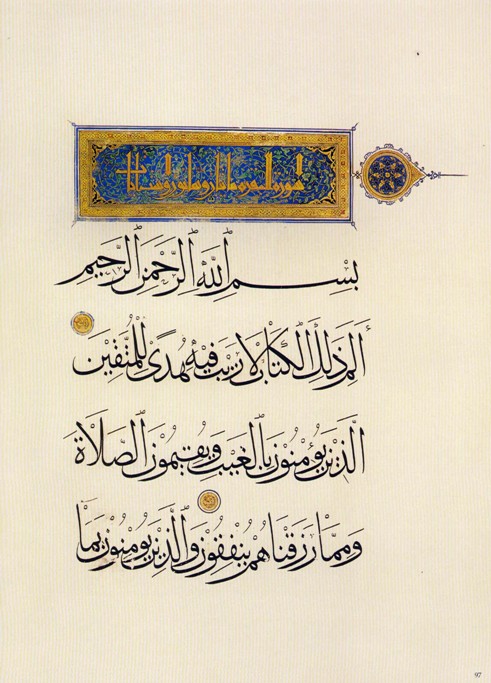 سورة البقرة مايتان وثمانون وست ايات
بِسْمِ اللَّهِ الرَّحْمَنِ الرَّحِيمِ
الم ذَلِكَ الْكِتَابُ لَا رَيْبَ فِيهِ هُدًى لِلْمُتَّقِينَ
الَّذِينَ يُؤْمِنُونَ بِالْغَيْبِ وَيُقِيمُونَ الصَّلَاةَ
وَمِمَّا رَزَقْنَاهُمْ يُنْفِقُونَ وَالَّذِينَ يُؤْمِنُونَ بِمَا
97